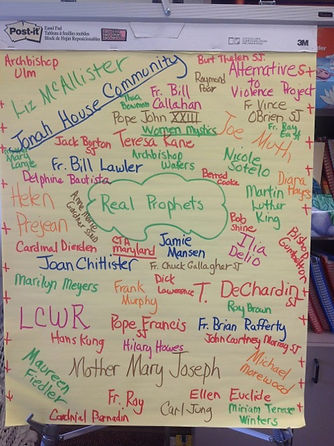 Post-it
Easel Pad
Tableau à feuilles mobiles
Block de Hojas Reposicionables
3M
Archbishop
Ulm
Burt Thelen SJ
Liz McAllister
Jonah House Community
Raymond
Alternatives
to
Violence Project
Thea
Bowman
Fr. Bill
Callahan
Pope John XXIII
Fr Vince
O'Brien SJ
Women Mystics
Joe Muth
Mary
Lange
Jack Byston
SJ
Teresa Kane
Archbishop
Fr. Bill Lawler
Nicole
Sotelo
Delphine Bautista
Bernard
Cooke
Diana
Hayes
Helen
Prejean
Real Prophets
Martin
Luther
King
Anne Marie
Bob
Shine
Ilia
Delio
Bishop
Gumbleton
Cardinal Dierden
CTA
Maryland
Jamie
Mansen
Joan Chitlister
Fr Chuck Gallagher SJ
Marilyn Meyers
Frank
Murphy
Dick
Lawrence
T. DeChardin
SJ
Roy Brown
LCWR
Pope Francis
SJ
Fr. Brian Rafferty
Hans Kung
Hilary Howes
John Courtney Murray SJ
Mother Mary Joseph
Michael
Morewood
Maureen
Fiedler
Fr. Roy
Carl Jung
Ellen Euclide
Miriam Terese
Winters
Cardnial Bernadin